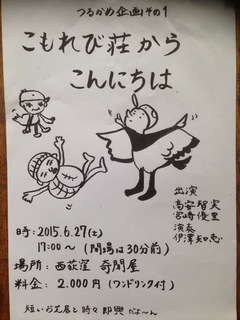 つるかめ企画その1
こもれび荘から
こんにちは
出演
高安智実
宮崎優里
演奏
伊澤知恵
時：2015.6.27(土)
17:00〜（開場は30分前）
場所：西荻窪 奇聞屋
料金：2.000円（ワンドリンク付）
短いお芝居と時々即興だよ〜ん